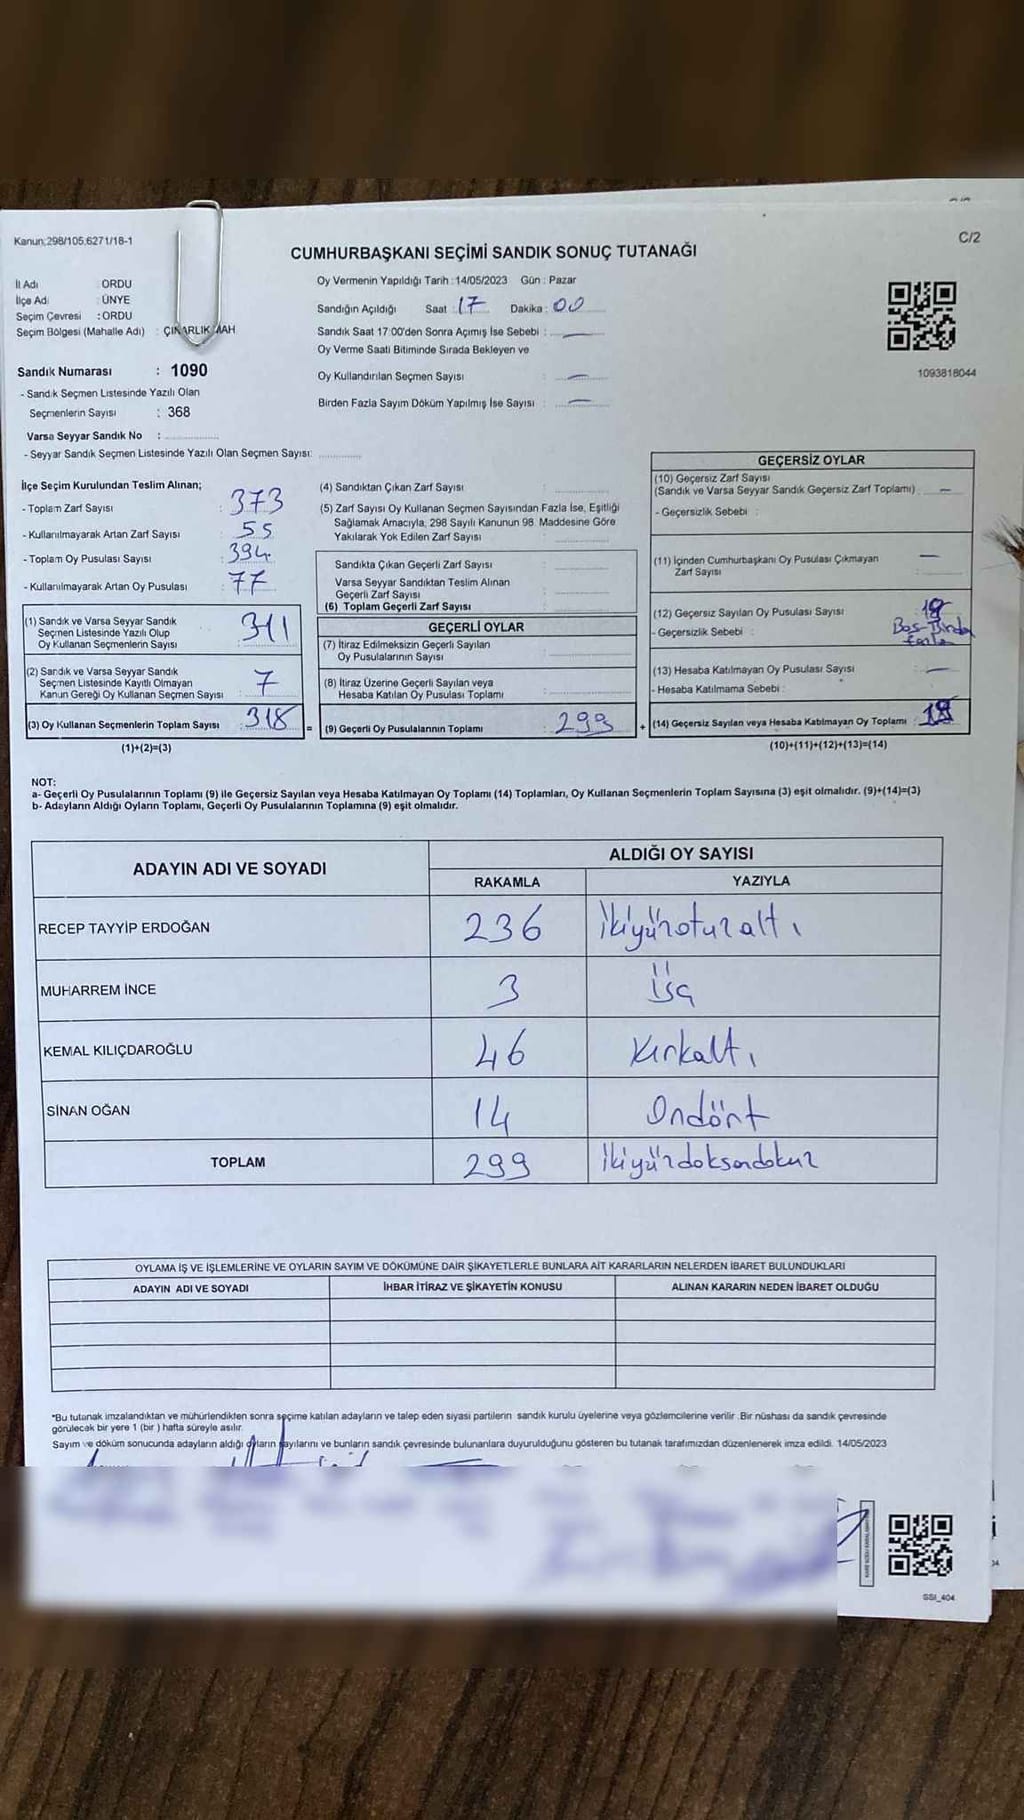 Kanun:298/105,6271/18-1
C/2
CUMHURBAŞKANI SEÇİMİ SANDIK SONUÇ TUTANAĞI
İl Adı : ORDU
İlçe Adı : ÜNYE
Seçim Çevresi : ORDU
Seçim Bölgesi (Mahalle Adı) : ÇINARLIK MAH
Sandık Numarası : 1090
- Sandık Seçmen Listesinde Yazılı Olan
Seçmenlerin Sayısı : 368
Varsa Seyyar Sandık No :
- Seyyar Sandık Seçmen Listesinde Yazılı Olan Seçmen Sayısı:
Oy Vermenin Yapıldığı Tarih : 14/05/2023 Gün : Pazar
Sandığın Açıldığı Saat : 17 Dakika : 00
Sandık Saat 17:00'den Sonra Açımış İse Sebebi : —
Oy Verme Saati Bitiminde Sırada Bekleyen ve
Oy Kullandırılan Seçmen Sayısı : —
Birden Fazla Sayım Döküm Yapılmış İse Sayısı : —
1093818044
İlçe Seçim Kurulundan Teslim Alınan;
- Toplam Zarf Sayısı : 373
- Kullanılmayarak Artan Zarf Sayısı : 55
- Toplam Oy Pusulası Sayısı : 394
- Kullanılmayarak Artan Oy Pusulası : 77
(1) Sandık ve Varsa Seyyar Sandık
Seçmen Listesinde Yazılı Olup
Oy Kullanan Seçmenlerin Sayısı : 311
(2) Sandık ve Varsa Seyyar Sandık
Seçmen Listesinde Kayıtlı Olmayan
Kanun Gereği Oy Kullanan Seçmen Sayısı : 7
(3) Oy Kullanan Seçmenlerin Toplam Sayısı : 318
(1)+(2)=(3)
(4) Sandıktan Çıkan Zarf Sayısı :
(5) Zarf Sayısı Oy Kullanan Seçmen Sayısından Fazla İse, Eşitliği
Sağlamak Amacıyla, 298 Sayılı Kanunun 98. Maddesine Göre
Yakılarak Yok Edilen Zarf Sayısı :
Sandıkta Çıkan Geçerli Zarf Sayısı :
Varsa Seyyar Sandıktan Teslim Alınan
Geçerli Zarf Sayısı :
(6) Toplam Geçerli Zarf Sayısı :
GEÇERLİ OYLAR
(7) İtiraz Edilmeksizin Geçerli Sayılan
Oy Pusulalarının Sayısı :
(8) İtiraz Üzerine Geçerli Sayılan veya
Hesaba Katılan Oy Pusulası Toplamı :
= (9) Geçerli Oy Pusulalarının Toplamı : 299
GEÇERSİZ OYLAR
(10) Geçersiz Zarf Sayısı
(Sandık ve Varsa Seyyar Sandık Geçersiz Zarf Toplamı) : —
- Geçersizlik Sebebi :
(11) İçinden Cumhurbaşkanı Oy Pusulası Çıkmayan
Zarf Sayısı : —
(12) Geçersiz Sayılan Oy Pusulası Sayısı : 19
- Geçersizlik Sebebi : Boş-Birden
fazla
(13) Hesaba Katılmayan Oy Pusulası Sayısı : —
- Hesaba Katılmama Sebebi :
+ (14) Geçersiz Sayılan veya Hesaba Katılmayan Oy Toplamı : 19
(10)+(11)+(12)+(13)=(14)
NOT:
a- Geçerli Oy Pusulalarının Toplamı (9) ile Geçersiz Sayılan veya Hesaba Katılmayan Oy Toplamı (14) Toplamları, Oy Kullanan Seçmenlerin Toplam Sayısına (3) eşit olmalıdır. (9)+(14)=(3)
b- Adayların Aldığı Oyların Toplamı, Geçerli Oy Pusulalarının Toplamına (9) eşit olmalıdır.
ADAYIN ADI VE SOYADI
ALDIĞI OY SAYISI
RAKAMLA YAZIYLA
RECEP TAYYİP ERDOĞAN 236 İkiyüzotuzaltı
MUHARREM İNCE 3 Üç
KEMAL KILIÇDAROĞLU 46 Kırkaltı
SİNAN OĞAN 14 Ondört
TOPLAM 299 İkiyüzdoksandokuz
OYLAMA İŞ VE İŞLEMLERİNE VE OYLARIN SAYIM VE DÖKÜMÜNE DAİR ŞİKAYETLERLE BUNLARA AİT KARARLARIN NELERDEN İBARET BULUNDUKLARI
ADAYIN ADI VE SOYADI İHBAR İTİRAZ VE ŞİKAYETİN KONUSU ALINAN KARARIN NEDEN İBARET OLDUĞU
*Bu tutanak imzalandıktan ve mühürlendikten sonra seçime katılan adayların ve talep eden siyasi partilerin sandık kurulu üyelerine veya gözlemcilerine verilir. Bir nüshası da sandık çevresinde
görülecek bir yere 1 (bir ) hafta süreyle asılır.
Sayım ve döküm sonucunda adayların aldığı oyların sayılarını ve bunların sandık çevresinde bulunanlara duyurulduğunu gösteren bu tutanak tarafımızdan düzenlenerek imza edildi. 14/05/2023
SSI_404